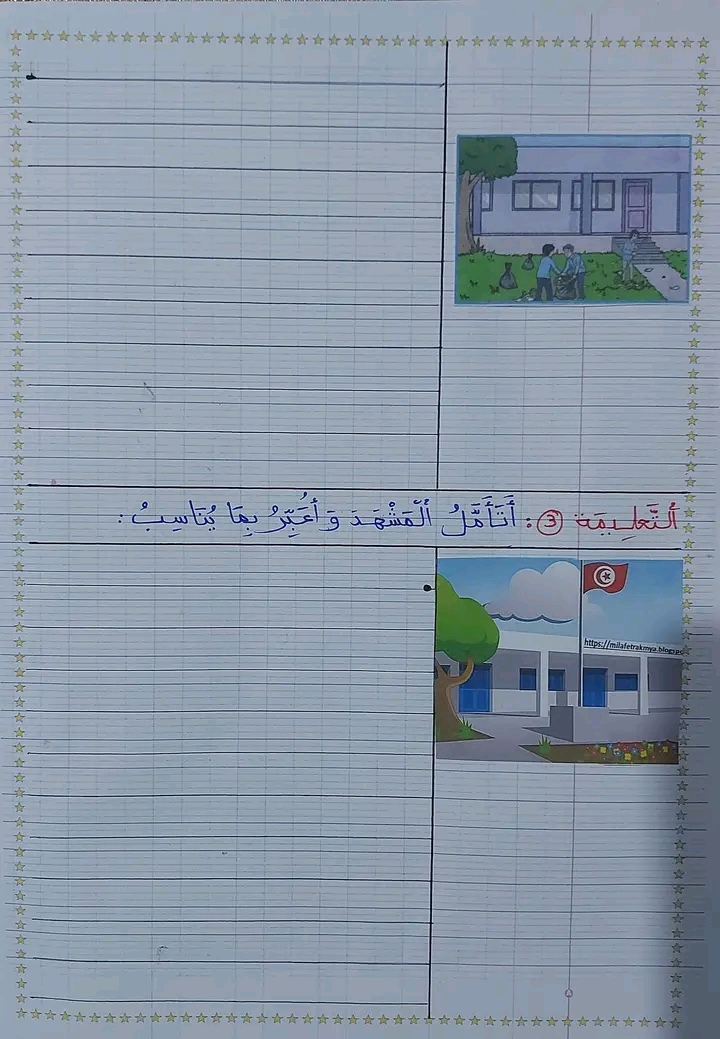 اُلتَّعلِيمَة ③: أَتَأَمَّلُ اُلْمَشْهَدَ وَ أُعَبِّرُ بِمَا يُنَاسِبُ:
https://milafetrakmya.blogspo